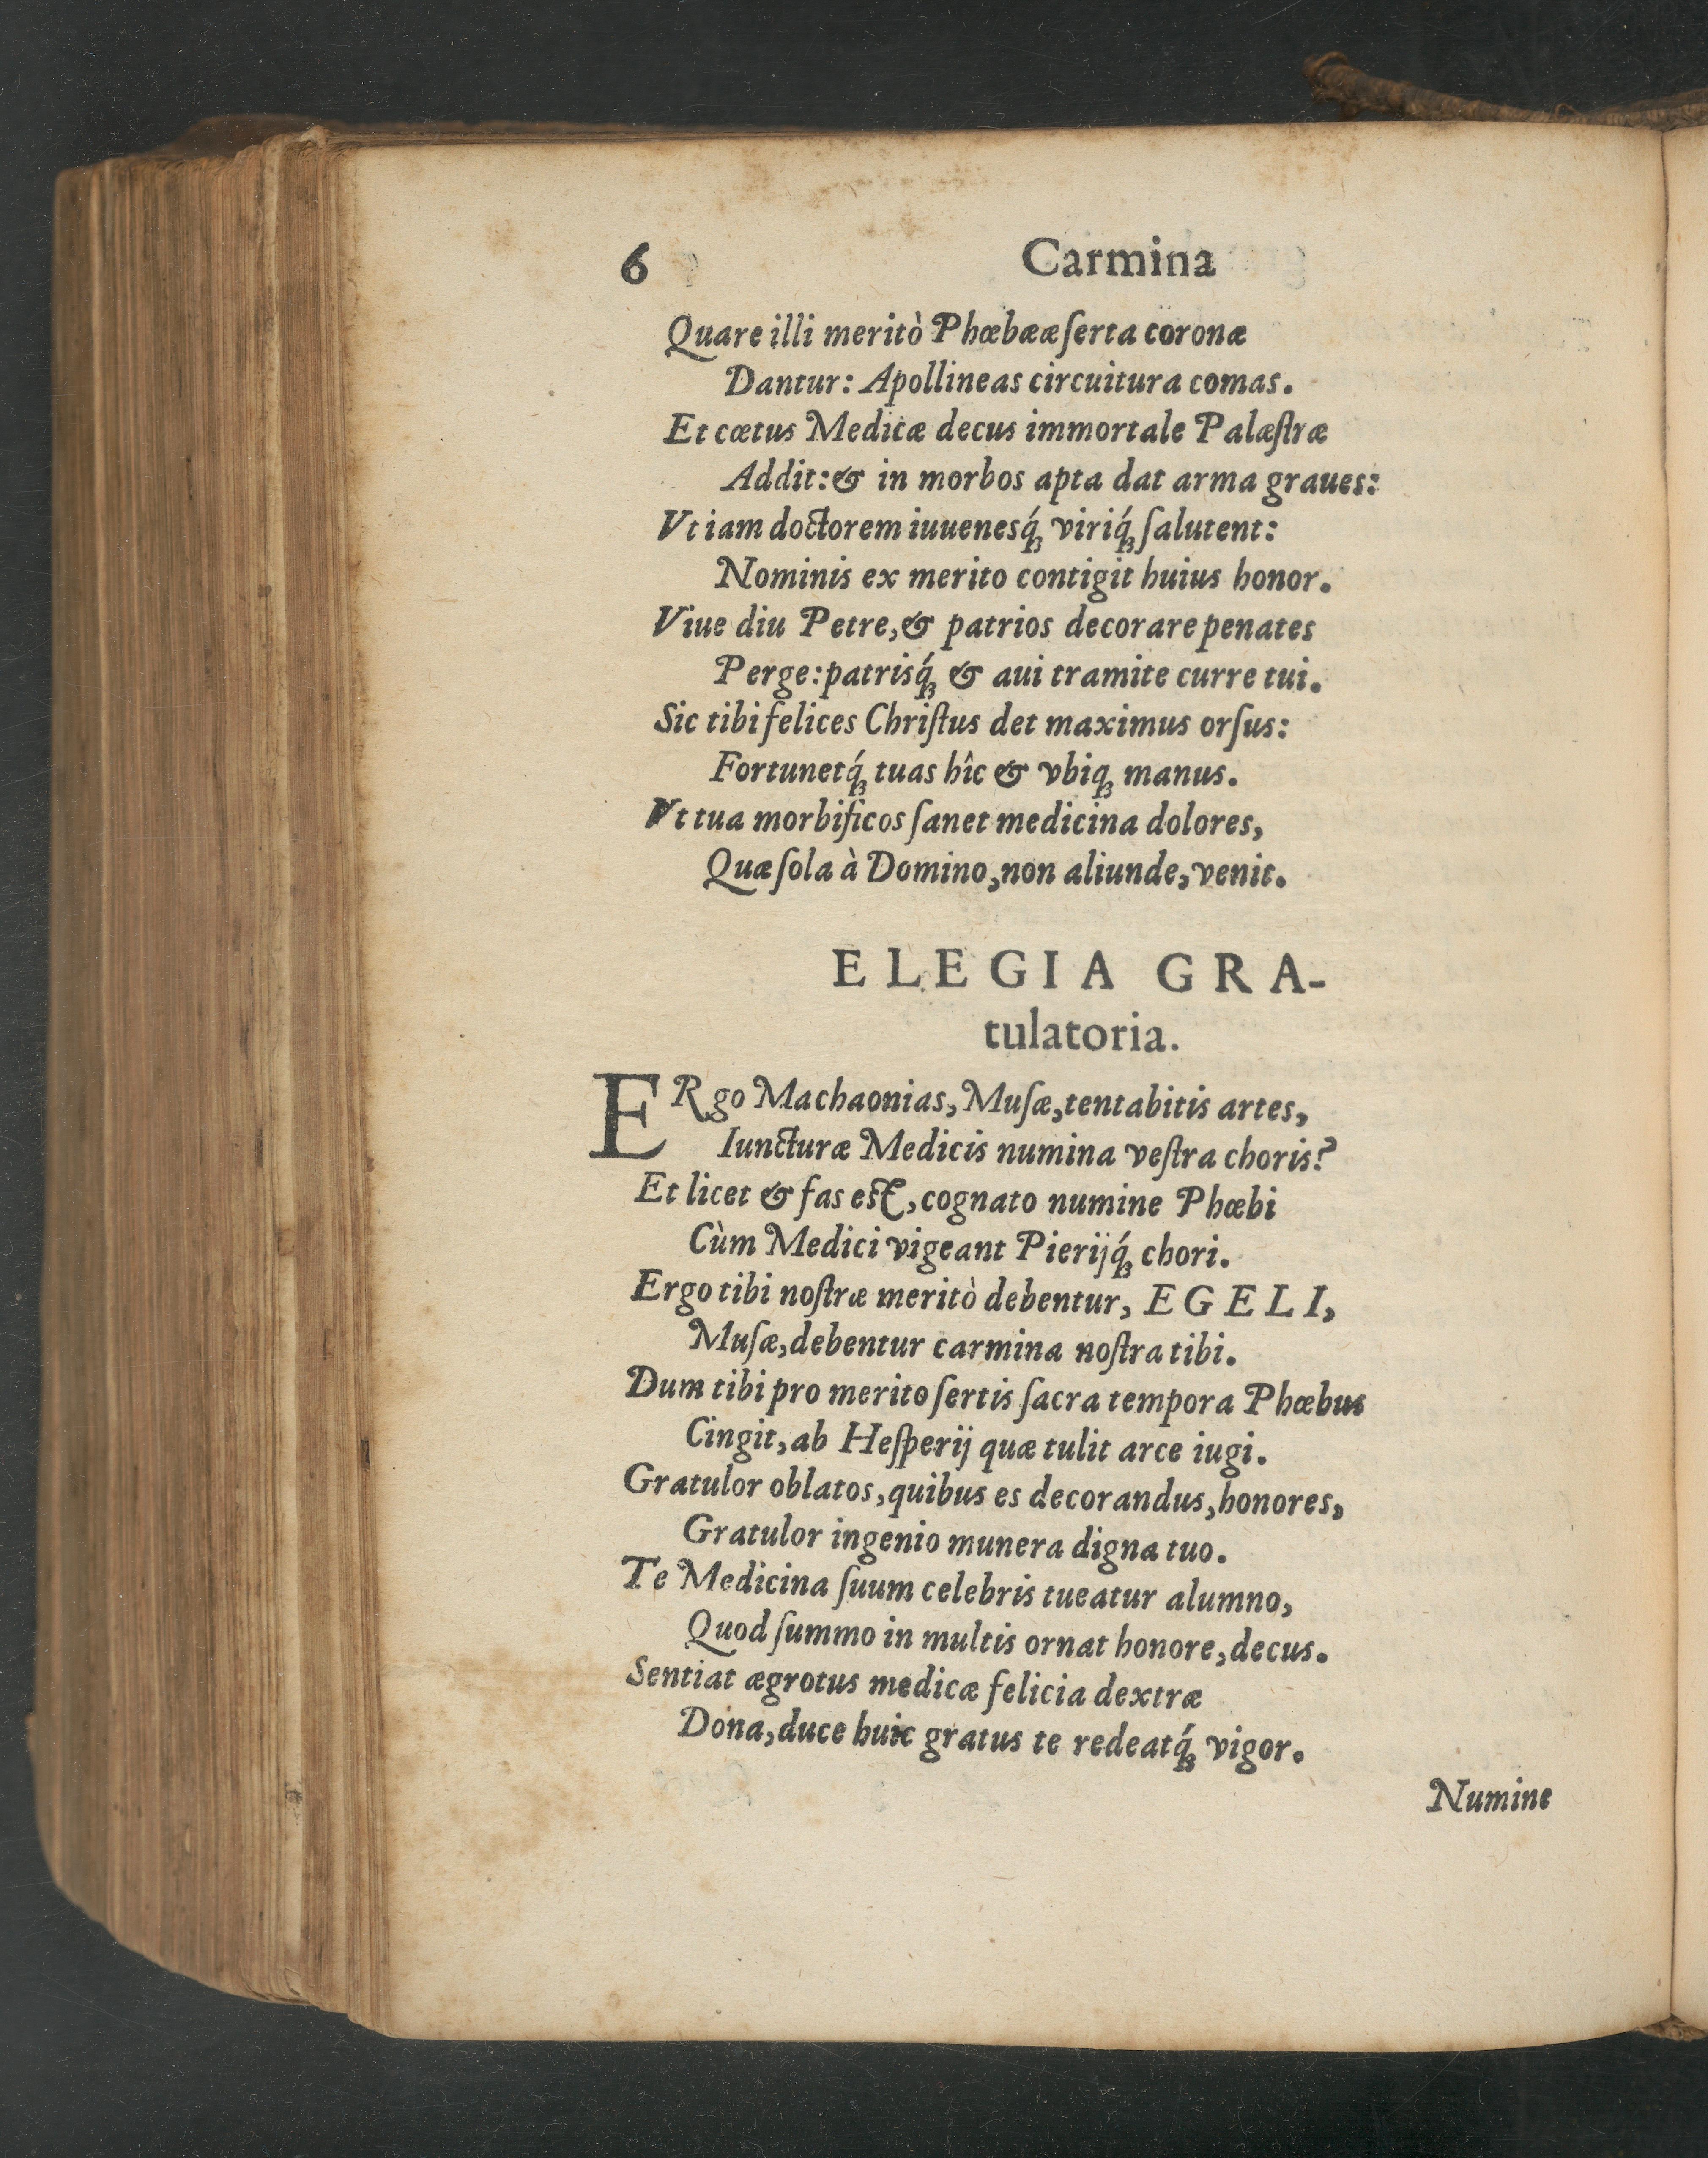 6 Carmina
Quare illi meritò Phœbææ ſerta coronæ
Dantur: Apollineas circuitura comas.
Et cœtus Medicæ decus immortale Palæſtræ
Addit: & in morbos apta dat arma graues:
Vt iam doctorem iuuenesq́ꝫ viriq́ꝫ ſalutent:
Nominis ex merito contigit huius honor.
Viue diu Petre, & patrios decorare penates
Perge: patrisq́ꝫ & aui tramite curre tui.
Sic tibi felices Chriſtus det maximus orſus:
Fortunetq́ꝫ tuas hîc & vbiqꝫ manus.
Vt tua morbificos ſanet medicina dolores,
Quæ ſola à Domino, non aliunde, venit.
ELEGIA GRA-
tulatoria.
ERgo Machaonias, Muſæ, tentabitis artes,
Iuncturæ Medicis numina veſtra choris?
Et licet & fas est, cognato numine Phœbi
Cùm Medici vigeant Pierijq́ꝫ chori.
Ergo tibi noſtræ meritò debentur, EGELI,
Muſæ, debentur carmina noſtra tibi.
Dum tibi pro merito ſertis ſacra tempora Phœbus
Cingit, ab Heſperij quæ tulit arce iugi.
Gratulor oblatos, quibus es decorandus, honores,
Gratulor ingenio munera digna tuo.
Te Medicina ſuum celebris tueatur alumno,
Quod ſummo in multis ornat honore, decus.
Sentiat ægrotus medicæ felicia dextræ
Dona, duce huic gratus te redeatq́ꝫ vigor.
Numine